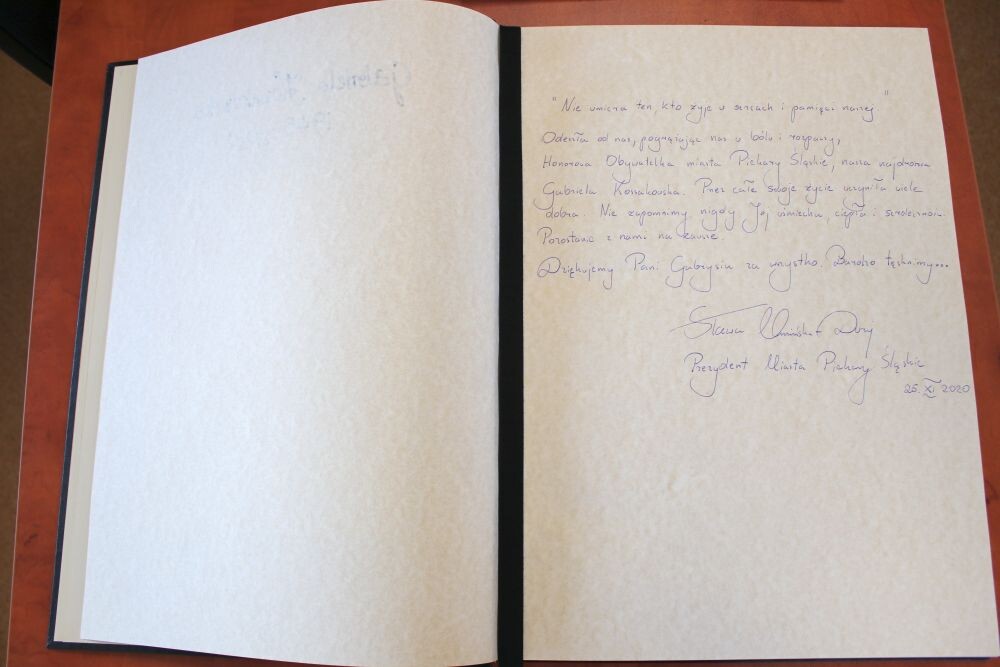 Gabriela
"Nie umiera ten, kto żyje w sercach i pamięci naszej."
Odeszła od nas, pogrążając nas w bólu i rozpaczy,
Honorowa Obywatelka miasta Piekary Śląskie, nasza najdroższa
Gabriela Kossakowska. Przez całe swoje życie uczyniła wiele
dobra. Nie zapomnimy nigdy Jej uśmiechu, ciepła i serdeczności.
Pozostanie z nami na zawsze.
Dziękujemy Pani Gabrysiu za wszystko. Bardzo tęsknimy...
Sława Umińska-Duraj
Prezydent Miasta Piekary Śląskie
25. XI 2020